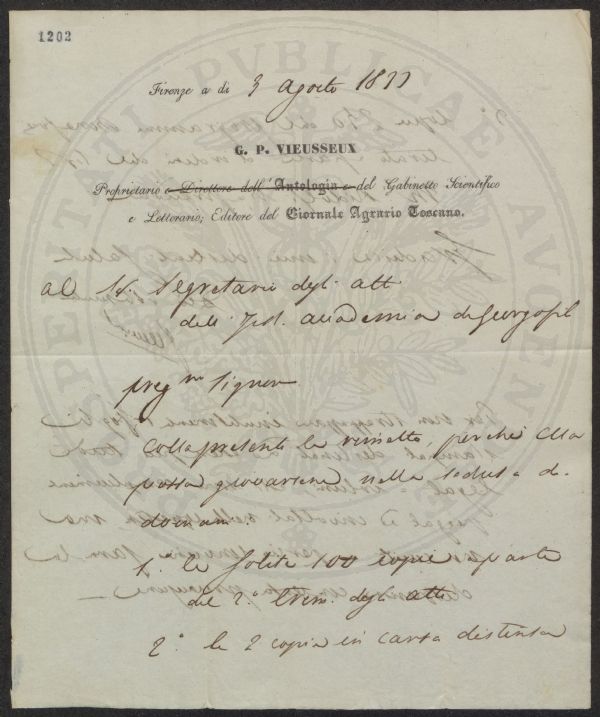 1202
Firenze a di 3 Agosto 1833
G. P. VIEUSSEUX
Proprietario e Direttore dell' Antologia e del Gabinetto Scientifico
e Letterario; Editore del Giornale Agrario Toscano.
al Sr. Segretario degli atti
dell' Accademia de Georgofili
preg mo Signore
Colla presente le rimetto, perchè Ella
possa giovarsene nella seduta di
domani.
1.° le solite 100 copie a parte
del 2.° trim. degli atti
2.° le 2 copie in carta distinta